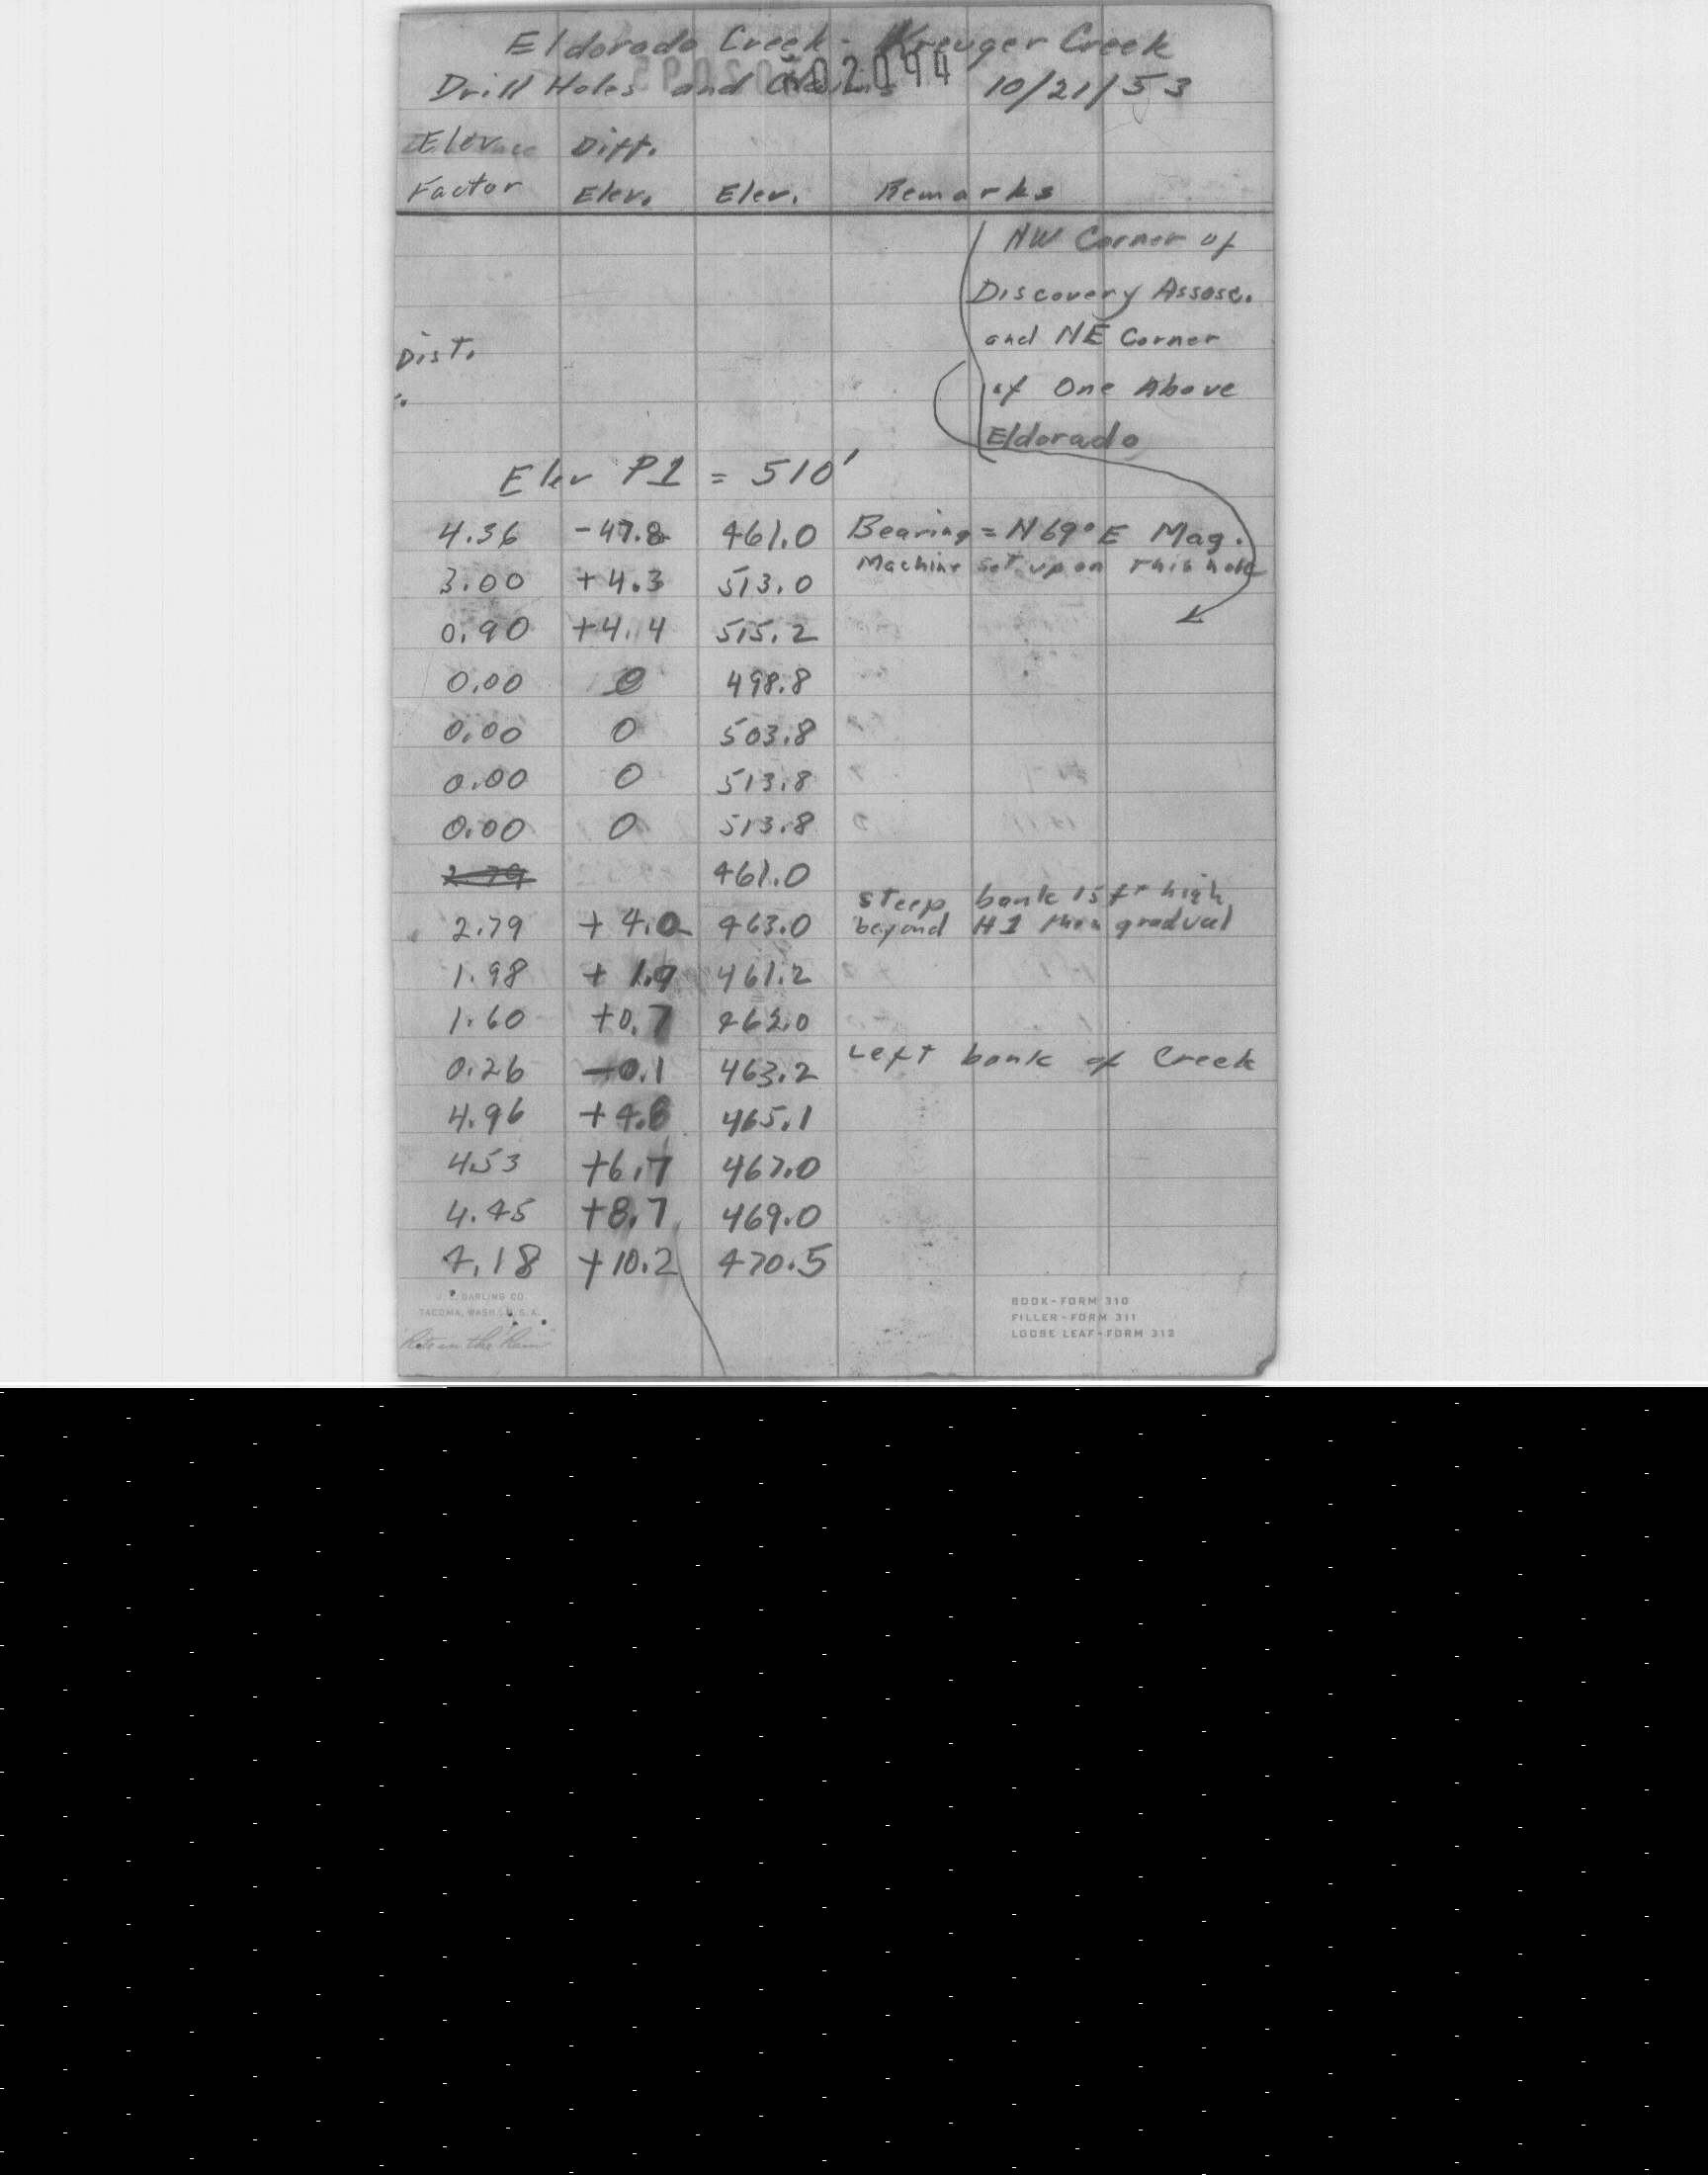 Eldorado Creek - Kreuger Creek
02094
Drill Holes and Claims 10/21/53
Elev Diff.
Factor Elev. Elev. Remarks
NW Corner of
Discovery Assosc.
and NE Corner
Dist.
of One Above
Eldorado
Elev P1 = 510'
4.36 -47.8 461.0 Bearing = N69°E Mag.
Machine set up on this hole
3.00 +4.3 513.0
0.90 +4.4 515.2
0.00 0 498.8
0.00 0 503.8
0.00 0 513.8
0.00 0 513.8
2.79 461.0
steep bank 15 ft high
2.79 +4.0 463.0 beyond H1 then gradual
1.98 +1.9 461.2
1.60 +0.7 462.0
0.26 -0.1 463.2 Left bank of Creek
4.96 +4.8 465.1
4.53 +6.7 467.0
4.45 +8.7 469.0
4.18 +10.2 470.5
J. L. DARLING CO.
TACOMA, WASH., U.S.A.
"Rite in the Rain"
BOOK-FORM 310
FILLER-FORM 311
LOOSE LEAF-FORM 312